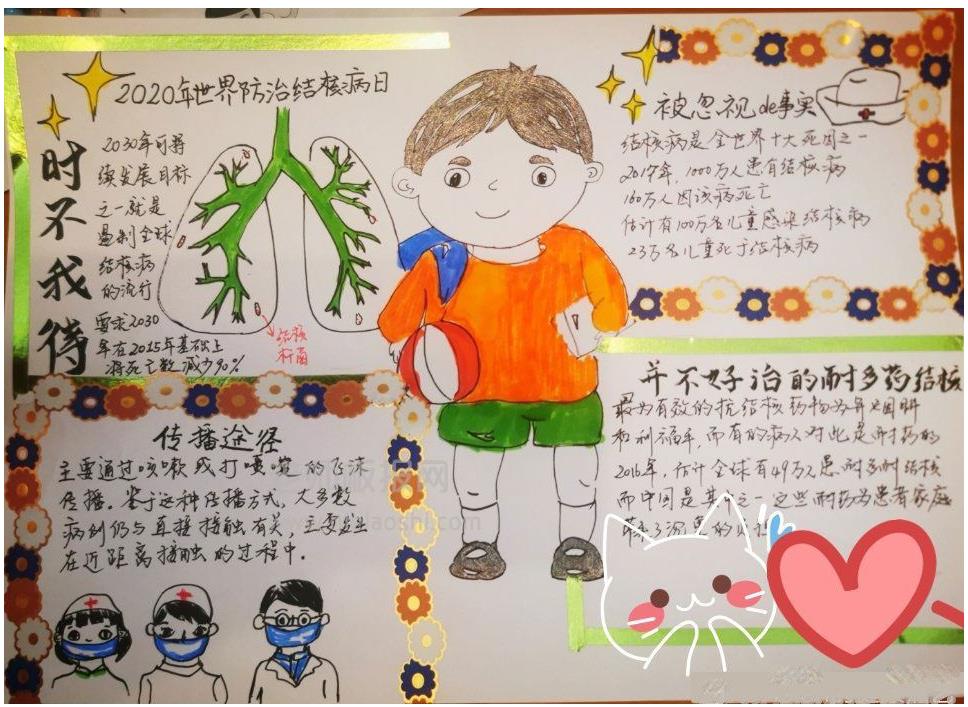 2020年世界防治结核病日
时不我待
2030年可持
续发展目标
之一就是
遏制全球
结核病
的流行
要求2030
年在2015年基础上
将死亡数减少90%
结核
杆菌
被忽视de事实
结核病是全世界十大死因之一
2017年,1000万人患有结核病
160万人因该病死亡
估计有100万名儿童感染结核病
23万名儿童死于结核病
传播途径
主要通过咳嗽或打喷嚏的飞沫
传播。鉴于这种传播方式,大多数
病例仍与直接接触有关,主要发生
在近距离接触的过程中.
并不好治的耐多药结核
最为有效的抗结核药物为异烟肼
和利福平,而有的病人对此是耐药的
2016年,估计全球有49万人患耐多耐结核
而中国是其中之一 这些耐药为患者家庭